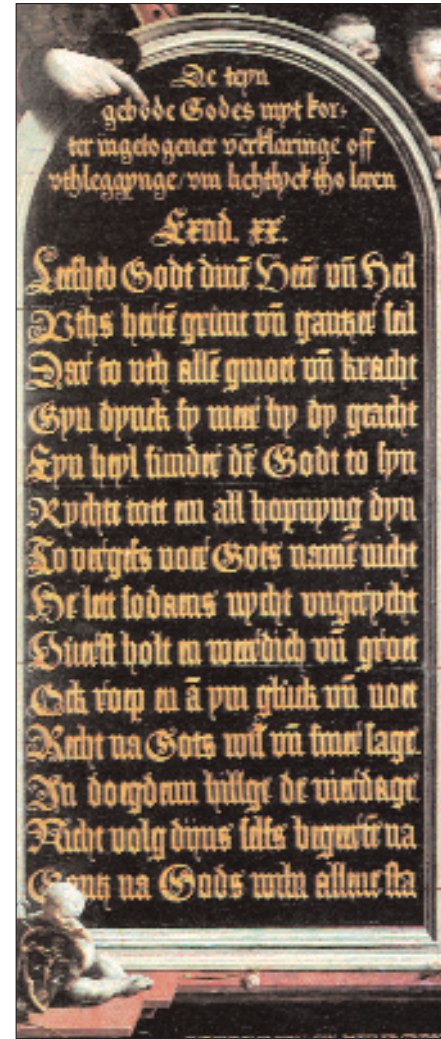 De teyn
gebode Godes myt kor-
ter ingetogener verklaringe off
vthleggynge/ vm lichtlyck tho leren
Exod. xx.
Leeffheb Godt dinē Heer vñ Heil
Vths hertē grunt vñ gantzer seil
Dar to vth allē gmoet vñ kracht
Gyn dynck sy meer by dy geacht
Eyn heyl sunder dē Godt to syn
Rychtet tott en all hopnyng dyn
To vergefs voer Gots namē nicht
He lett sodaens nycht vngerycht
Hierst holt en weerdich vñ groet
Ock roep en ā ym glück vñ noet
Recht na Gots will vñ siner sage
In doegdenn hillge de vierdage
Nicht volg dijns selfs begeertē na
Gantz na Gods welñ allene sta